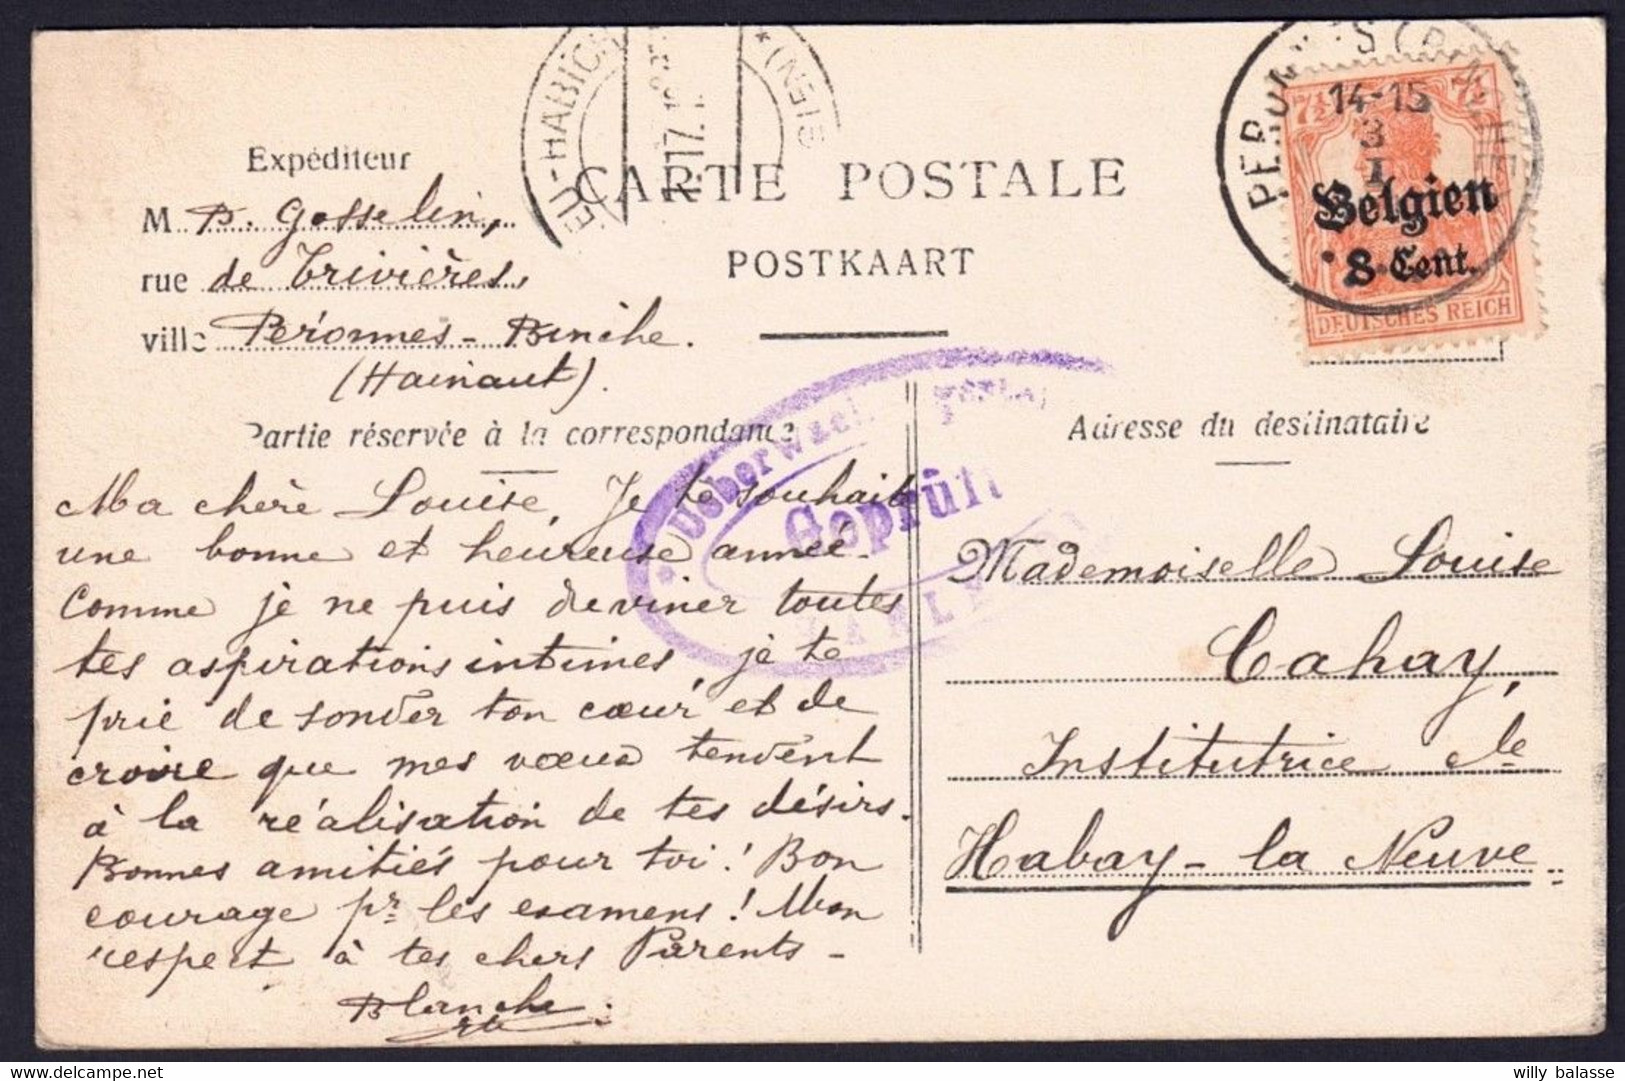 CARTE POSTALE
POSTKAART
Expéditeur
M B. Gosselin,
rue de Trivières,
ville Péronnes - Binche.
(Hainaut).
Partie réservée à la correspondance
Ma chère Louise, Je te souhaite
une bonne et heureuse année.
Comme je ne puis deviner toutes
tes aspirations intimes, je te
prie de sonder ton cœur et de
croire que mes vœux tendent
à la réalisation de tes désirs.
Bonnes amitiés pour toi! Bon
courage pr les examens! Mon
respect à tes chers Parents -
Blanche
Adresse du destinataire
Mademoiselle Louise
Cahay,
Institutrice de
Habay - la Neuve
7½ 7½
Belgien
8 Cent.
DEUTSCHES REICH
14-15
3
I
Geprüft
willy balasse